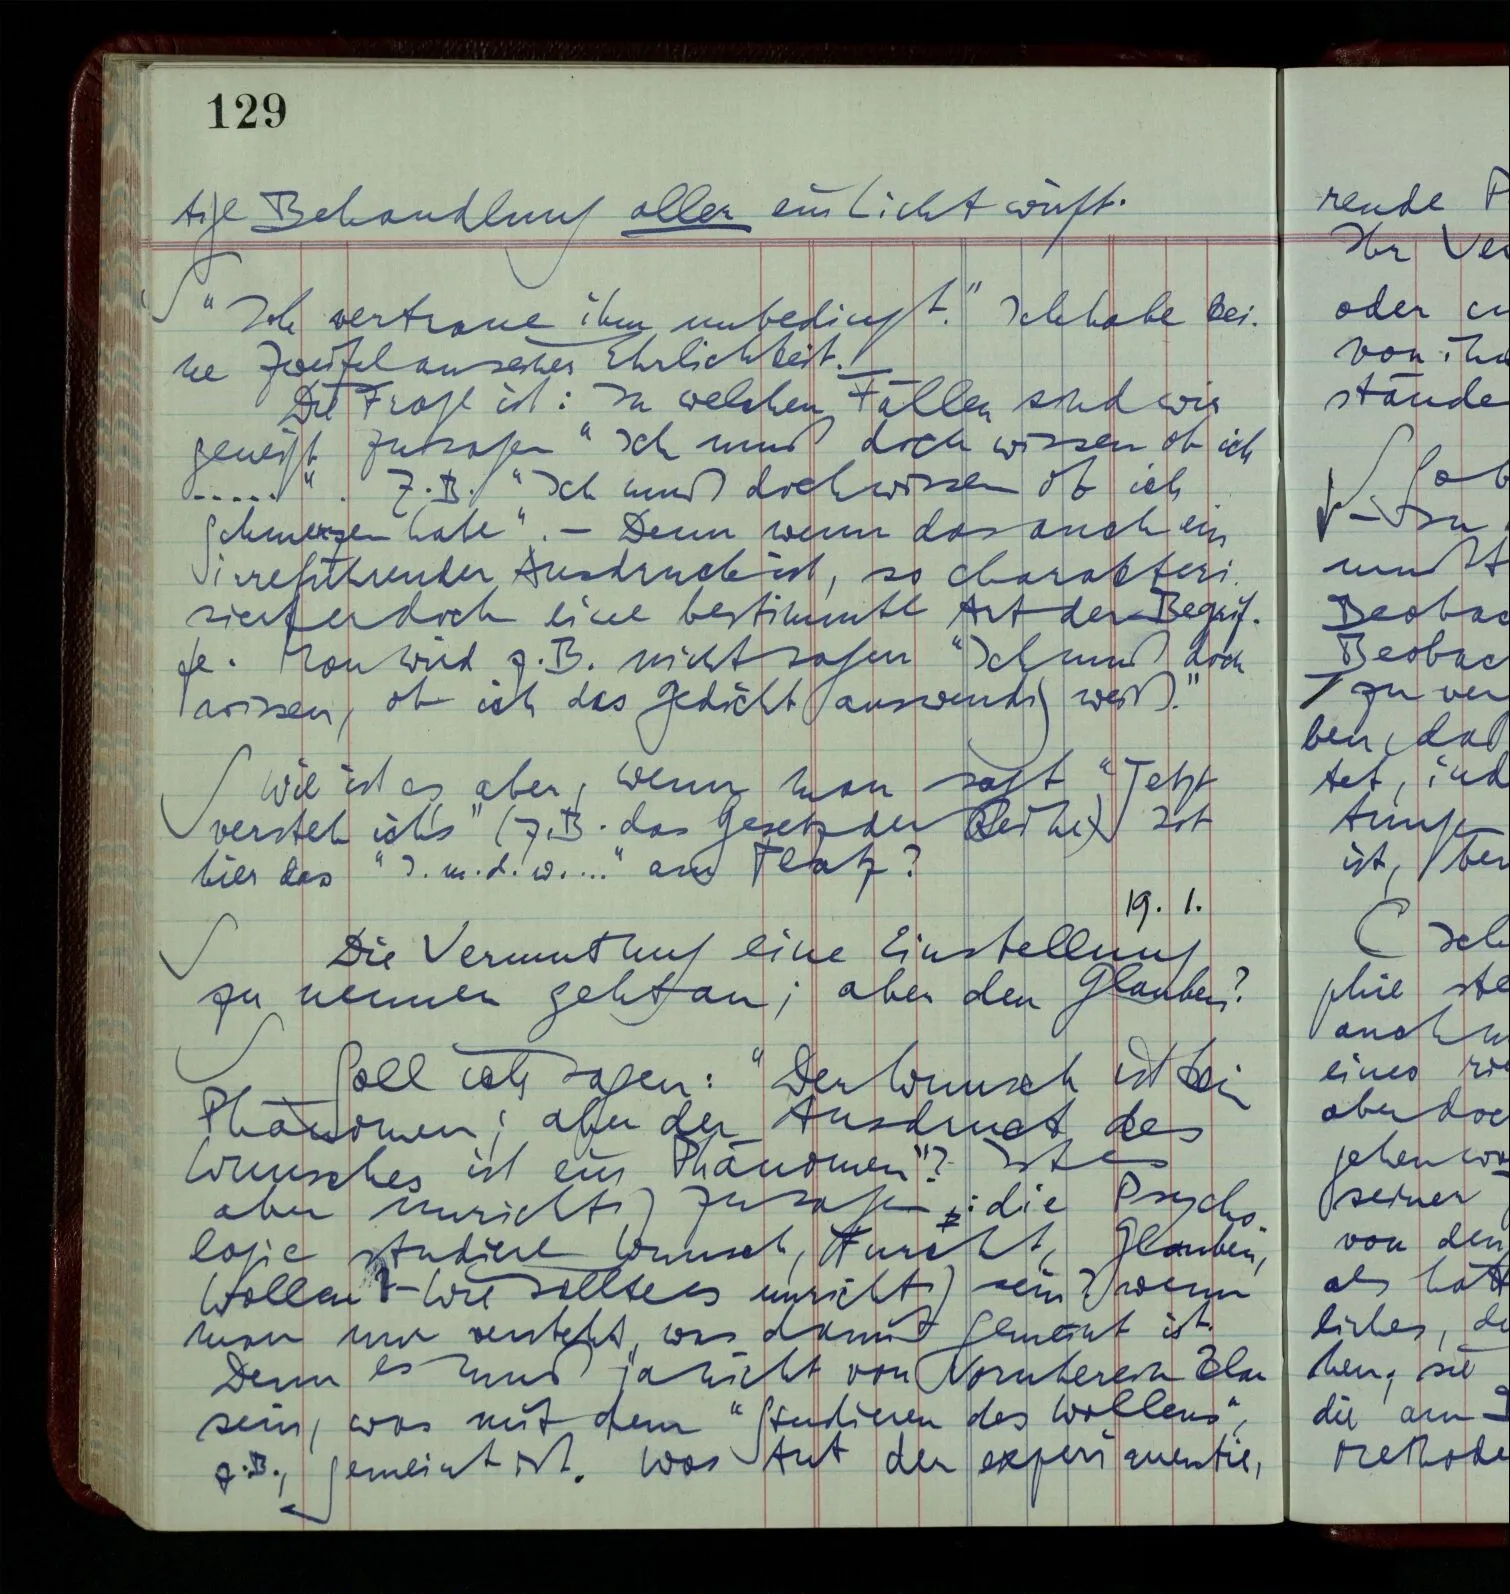 129
tige Behandlung aller ein Licht wirft.
"Ich vertraue ihm unbedingt." Ich habe kei-
ne Zweifel an seiner Ehrlichkeit.
Die Frage ist: In welchen Fällen sind wir
geneigt zu sagen "Ich muß doch wissen ob ich
.....". Z.B. "Ich muß doch wissen ob ich
Schmerzen habe". – Denn wenn das auch ein
irreführender Ausdruck ist, so charakteri-
siert er doch eine bestimmte Art der Begrif-
fe. Man wird z.B. nicht sagen "Ich muß doch
wissen, ob ich das Gedicht auswendig weiß."
Wie ist es aber, wenn man sagt "Jetzt
versteh ich's" (z.B. das Gesetz der Reihe) Ist
hier das "I.m.d.w...." am Platz?
19. 1.
Die Vermuthung eine Einstellung
zu nennen geht an; aber den Glauben?
Soll ich sagen: "Der Wunsch ist kein
Phänomen; aber der Ausdruck des
Wunsches ist ein Phänomen"? Ist es
aber unrichtig zu sagen: die Psycho-
logie studiere Wunsch, Furcht, Glauben,
Wollen? – Wie sollte es unrichtig sein? wenn
man nur versteht, was damit gemeint ist.
Denn es muß ja nicht von Vornherein klar
sein, was mit dem "Studieren des Wollens",
z.B., gemeint ist. Was Art der experimentie-
rende
Ihr
oder
von
stände
Beobac
Beobac
zu ver
ben, daß
tet, ind
ist,
Ich
phie ste
auch
eines
aber doc
gehen
seiner
von den
als hätt
liches,
hen; sie
die am
Methode